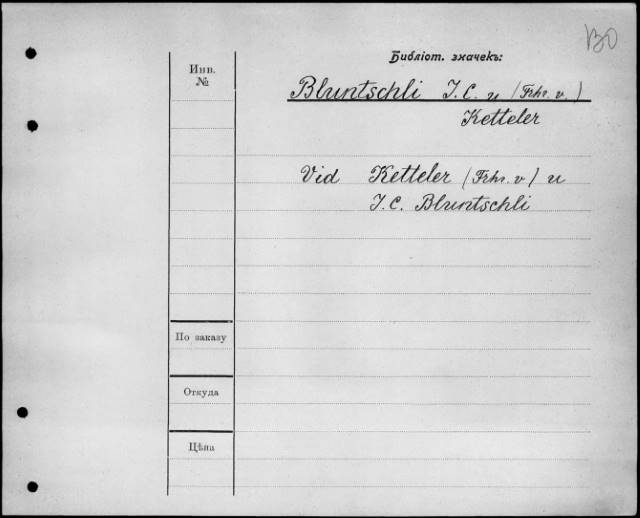 Библіот. значекъ:
Инв.
№
Bluntschli J. C. u (Frhr. v.)
Ketteler
Vid Ketteler (Frhr. v) u
J. C. Bluntschli
По заказу
Откуда
Цѣна